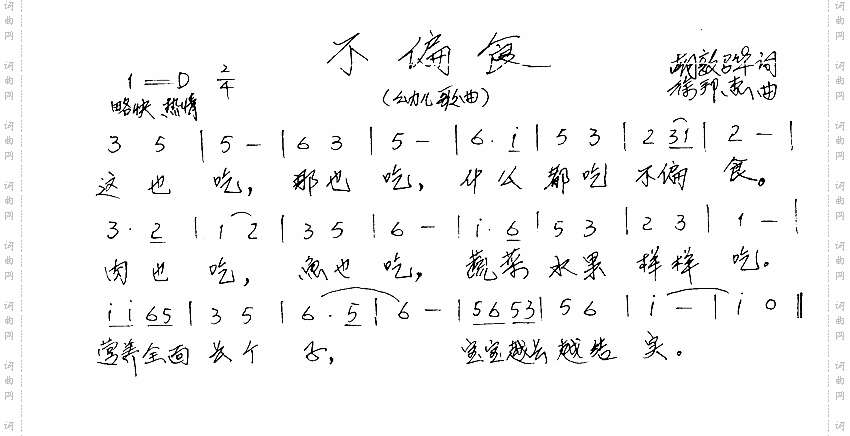 不偏食
1=D 2/4
(幼儿歌曲)
胡敦骅词
略快 热情
徐邦杰曲
3 5 | 5 - | 6 3 | 5 - | 6. i | 5 3 | 2 31 | 2 - |
这也 吃，那也 吃，什么 都吃 不偏 食。
3. 2 | 1 2 | 3 5 | 6 - | i. 6 | 5 3 | 2 3 | 1 - |
肉也 吃，鱼也 吃，蔬菜 水果 样样 吃。
i i 65 | 3 5 | 6. 5 | 6 - | 56 53 | 56 | i - | i 0 ‖
营养全面 长个 子，宝宝越长越结 实。
词曲网